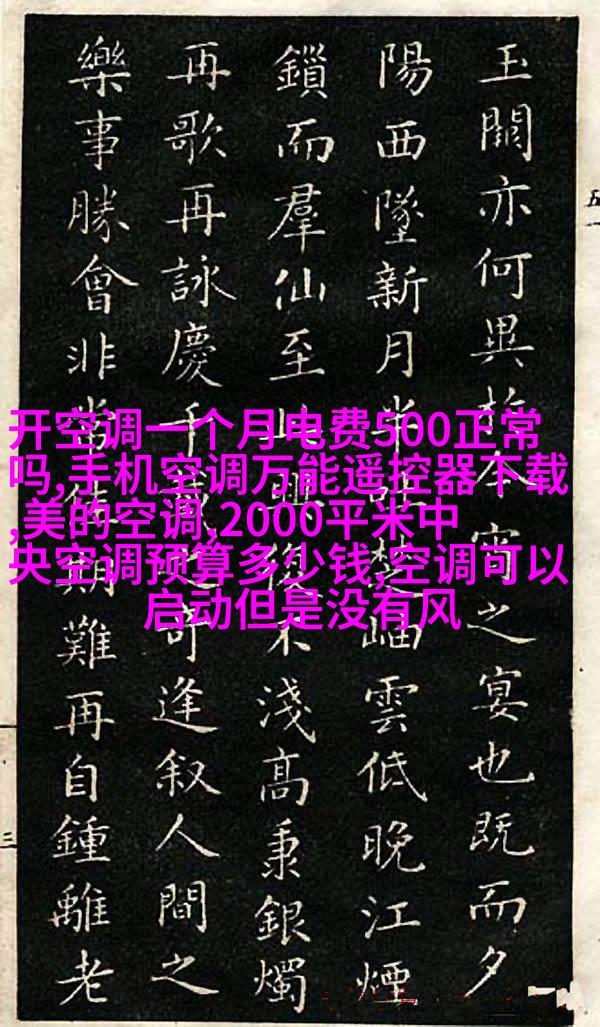 玉關亦何異於今宵之宴也既而夕
陽西墜新月半楚岫雲低晚江煙
鎖而羣仙至此興復不淺高秉銀燭
再歌再詠慶千載之奇逢叙人間之
樂事勝會非常佳期難再自鍾離老
开空调一个月电费500正常
吗,手机空调万能遥控器下载
,美的空调,2000平米中
央空调预算多少钱,空调可以
启动但是没有风
五一
三